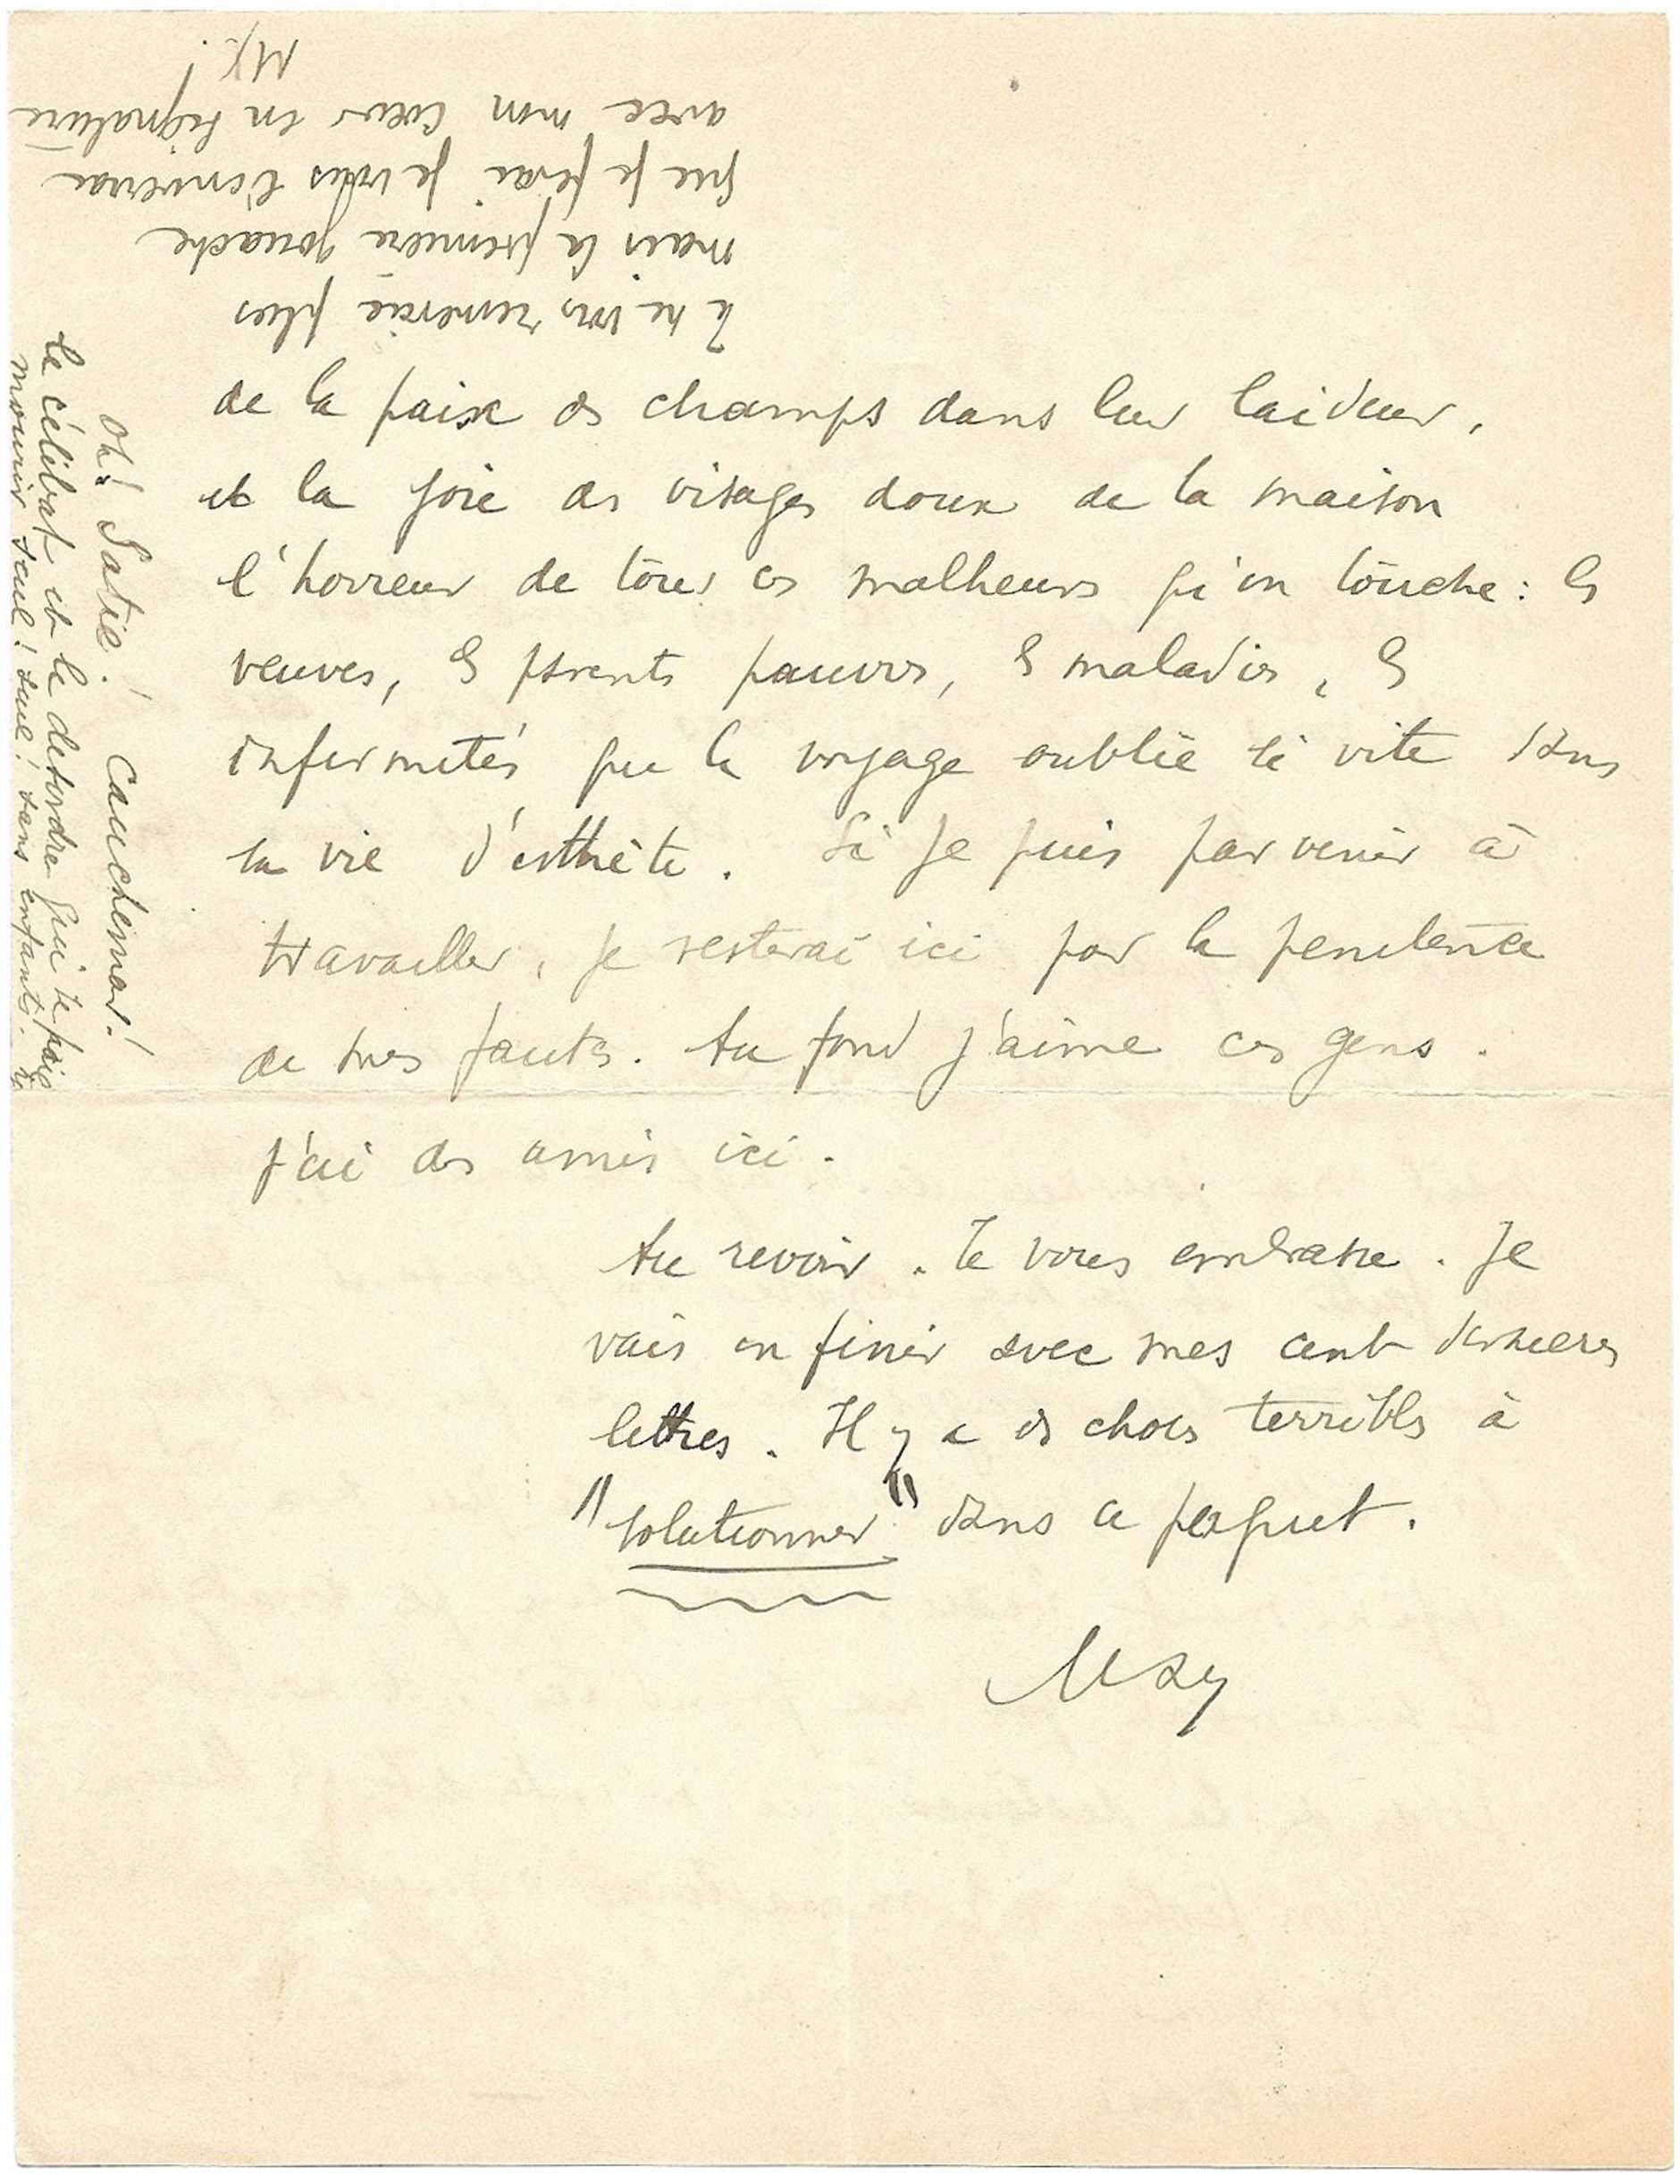 de la paix des champs dans leur laideur,
et la joie des visages doux de la maison
l'horreur de tous ces malheurs qu'on touche : les
veuves, les parents pauvres, les maladies, les
infirmités que le voyage oublie si vite dans
la vie d'esthète. Si je puis parvenir à
travailler, je resterai ici par la penitence
de mes fautes. Au fond j'aime ces gens.
j'ai des amis ici.
Au revoir. Je vous embrasse. Je
vais en finir avec mes cent dernieres
lettres. Il y a des choses terribles à
"solutionner" dans ce paquet.
Max
Oh! Satie! Cauchemar!
le célibat et le desordre qui te
mourir seul! seul! sans enfants.
Je ne vous remercie plus
mais la premiere gouache
que je ferai je vous l'enverrai
avec mon coeur en signature
MJ.